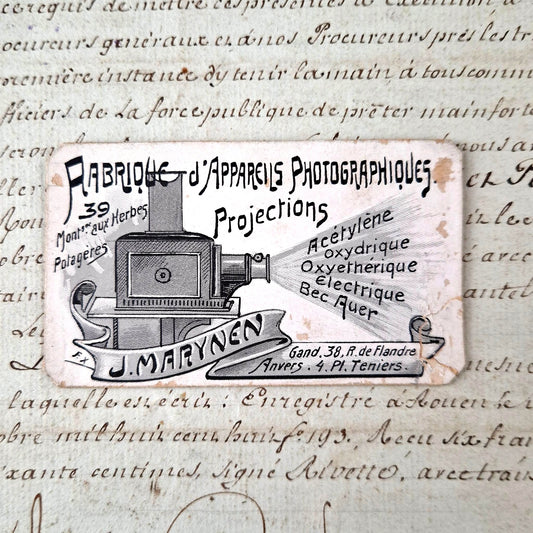 ce requis de mettre ces présentes à Exécution à
ocureurs généraux et à nos Procureurs près les tr
première instance d'y tenir la main à tous comm
fficiers de la force publique de prêter main forte
FABRIQUE D'APPAREILS PHOTOGRAPHIQUES.
39
Montgne aux Herbes
Potagères
Projections
Acétylène
oxydrique
Oxyethérique
Électrique
Bec Auer
J. MARYNEN
Gand. 38, R. de Flandre
Anvers. 4. Pl. Teniers.
laquelle est écrit : Enregistré à Rouen le
obre mil huit cent huit fo. 193. Reçu six fran
ixante centimes, signé Rivette, avec trait